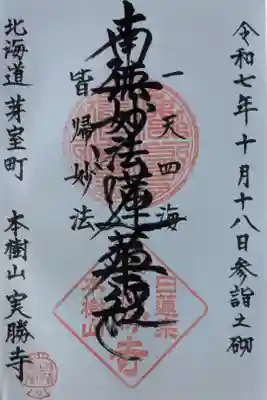 令和七年十月十八日参詣之砌
一天四海
南無妙法蓮華経
皆帰妙法
北海道芽室町 本樹山 実勝寺
日蓮宗
本樹山